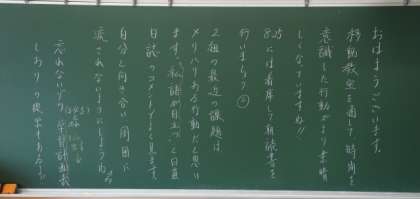 おはようございます。
移動教室を通して時間を
意識した行動がより素晴
しくなっていますね!!
8:25には着席して朝読書を
行いましょう
2組の最近の課題は
メリハリある行動だと思い
ます。私語が目立つと日直
日誌のコメントでよく見ます。
自分と向き合い周囲に
流されないようにしようね
忘れないでね 学習計画表
しおりの提出もあるよ。